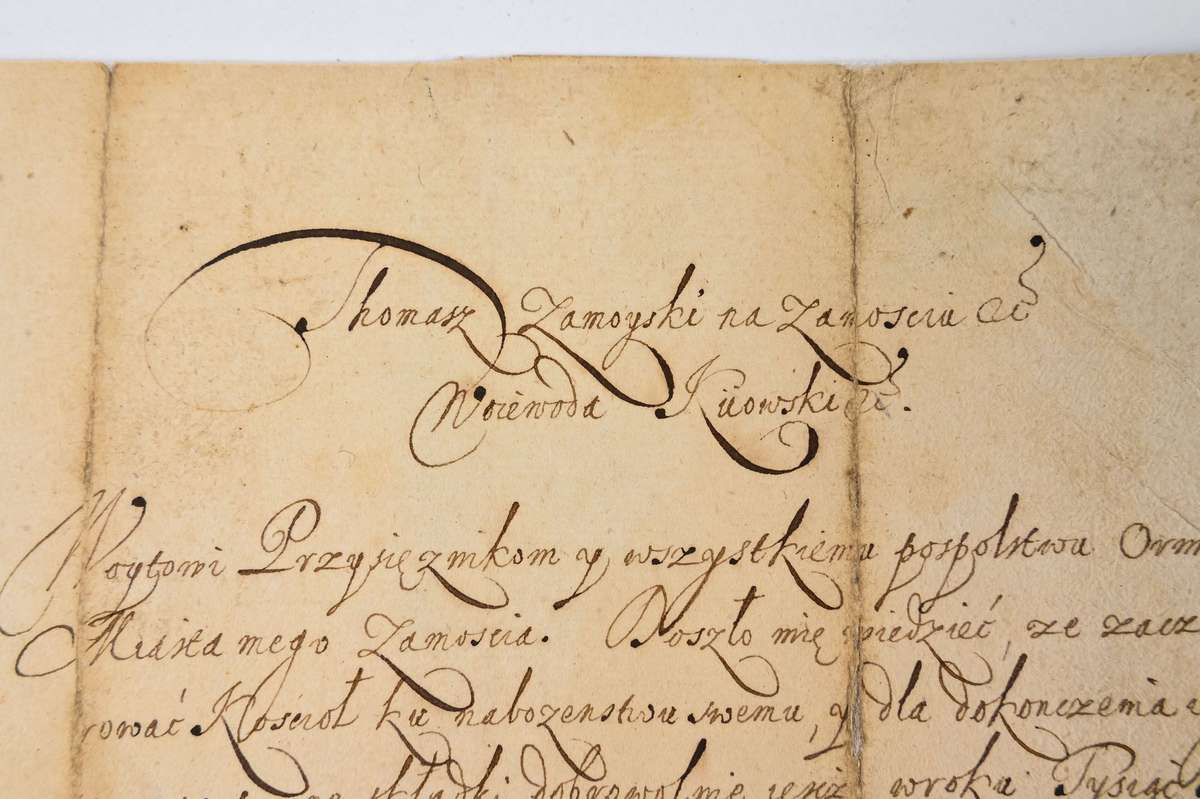 Thomasz Zamoyski na Zamosciu &c
Woiewoda Kiiowski &c.
Woytowi Przysięznikom y wszystkiemu pospolstwu Orm
Miasta mego Zamoscia. Doszło mię wiedzieć, ze zacz
rować Kościoł ku nabozenstwu swemu, y dla dokonczenia
składki dobrowolnie iesz wroku Tysiąc